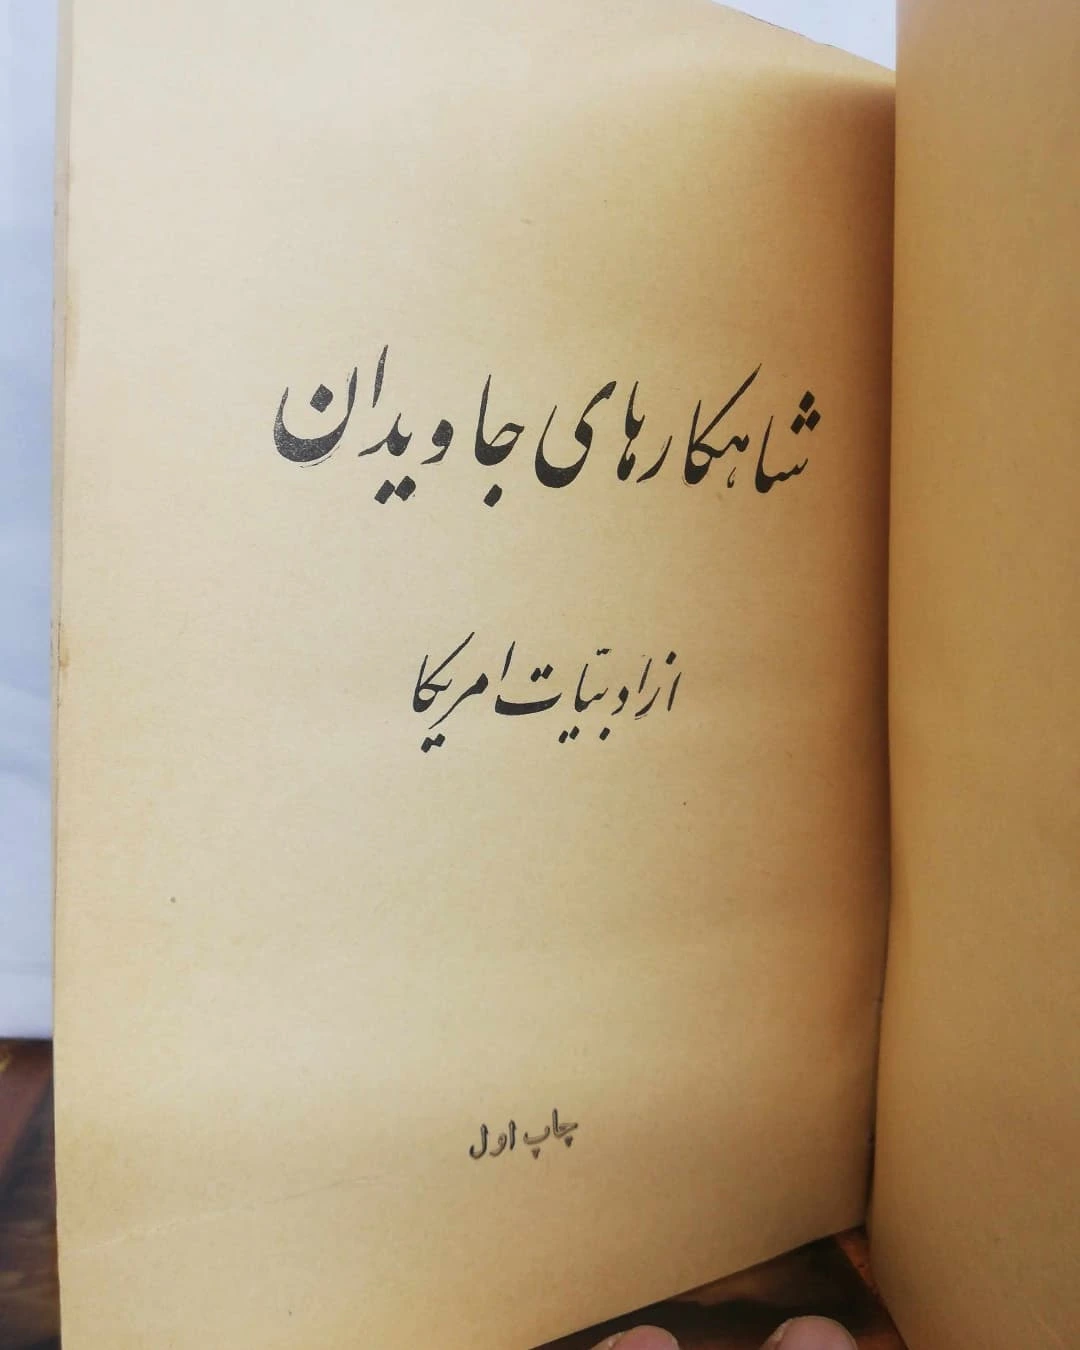 شاهکارهای جاویدان
از ادبیّات امریکا
چاپ اول